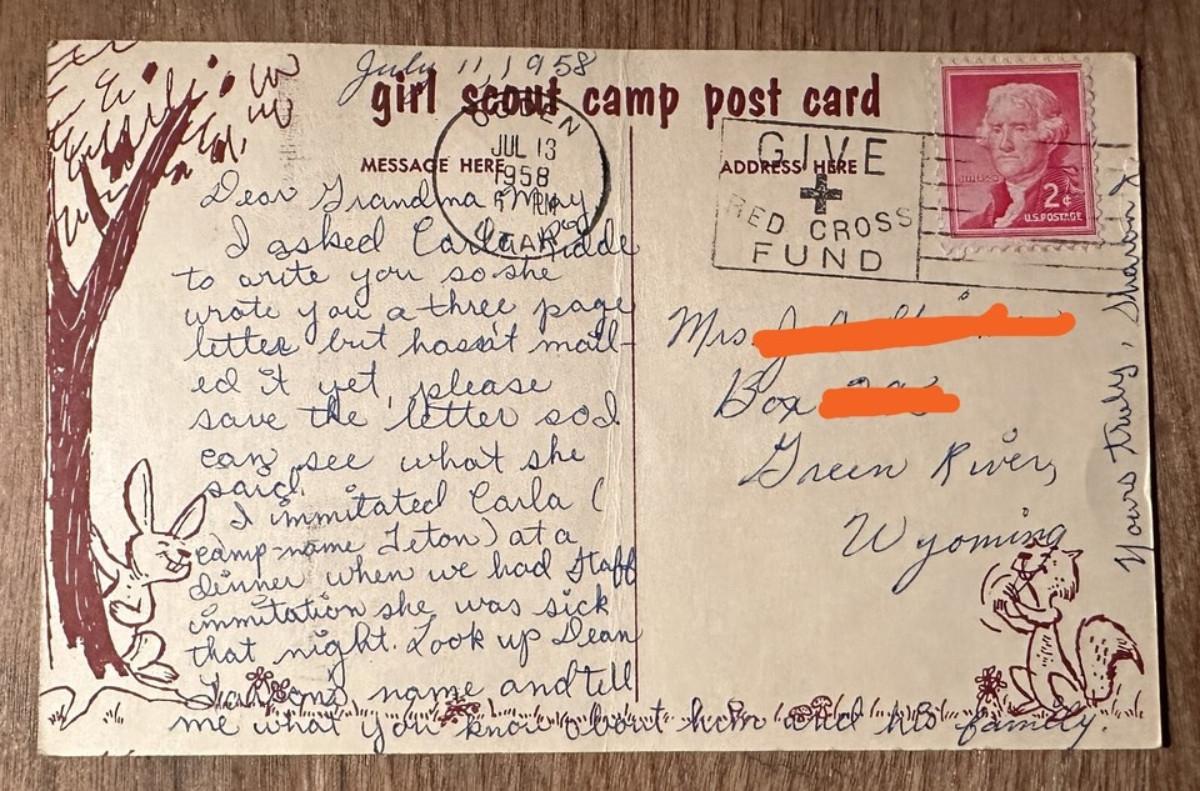 July 11, 1958
girl scout camp post card
MESSAGE HERE
OGDEN
JUL 13
1958
PM
UTAH
Dear Grandma May
I asked Carla
to write you so she
wrote you a three page
letter but hasn't mail-
ed it yet, please
save the letter so I
can see what she
said.
I immitated Carla (
camp-name Teton) at a
dinner when we had Staff
immitation she was sick
that night. Look up Dean
name and tell
me what you know about him and his family.
Yours truly, Sharon
ADDRESS HERE
GIVE
RED CROSS
FUND
2¢
U.S. POSTAGE
Mrs.
Box
Green River,
Wyoming